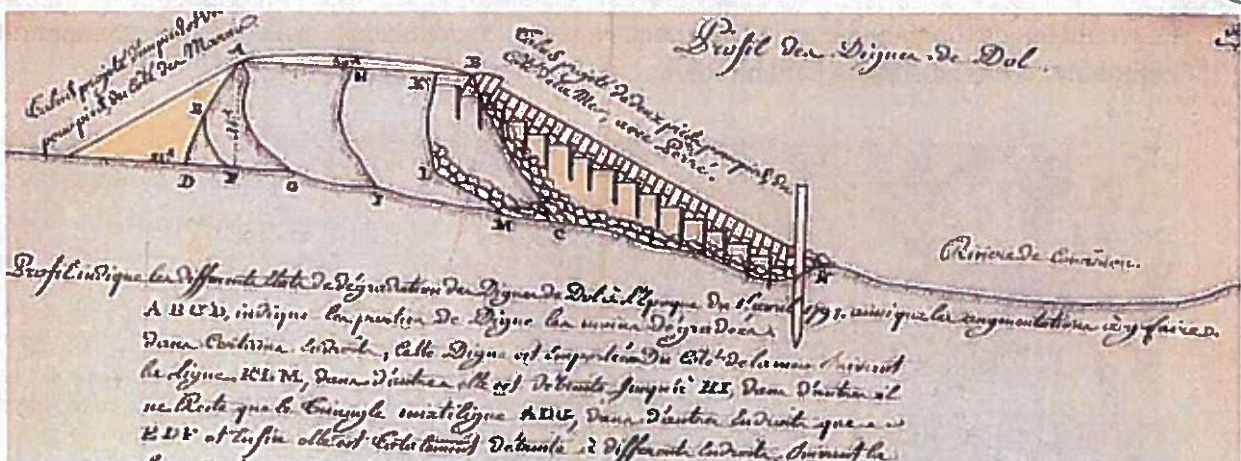 Profil des Digues de Dol.
Talus projeté d'un pied et demi
pour pied, du Côté des Marais
Talus projeté de deux pieds pour pied du
Côté de la Mer, avec Perré.
A
H
K
B
E
D
F
G
I
L
M
C
N
Riviere de
Profil indique les differents Etats de dégradation des Digues de Dol à l'Epoque du 1er avril 1791, ainsi que les augmentations à y faire.
ABCD, indique les parties de Digue les moins dégradées
dans Certains Endroits, Cette Digue est emportée du Coté de la mer Suivant
la ligne KLM, dans d'autres elle est Détruite jusqu'à HI, dans d'autres il
ne Reste que le Triangle mixtiligne ADG, dans d'autres Endroits que
EDF et Enfin elle est Totalement Détruite à differents Endroits, Suivant la